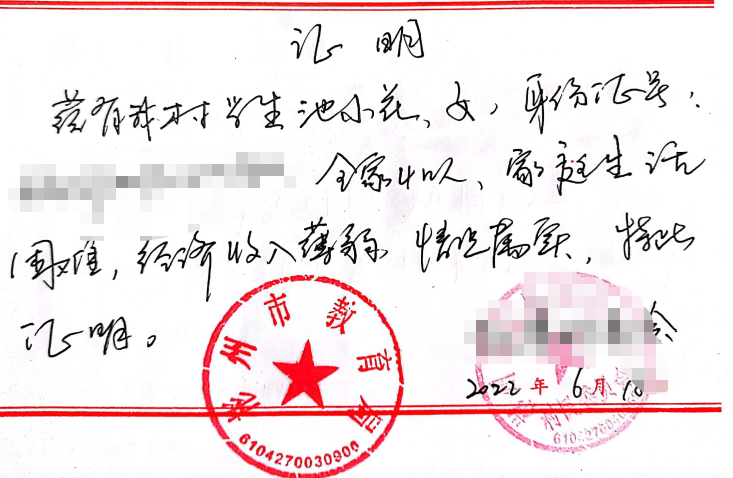 证 明
兹有我村学生池小花、女，身份证号：
全家4口人、家庭生活
困难，经济收入薄弱 情况属实，特此
证明。
彬州市教育局
6104270030900
2022年6月10